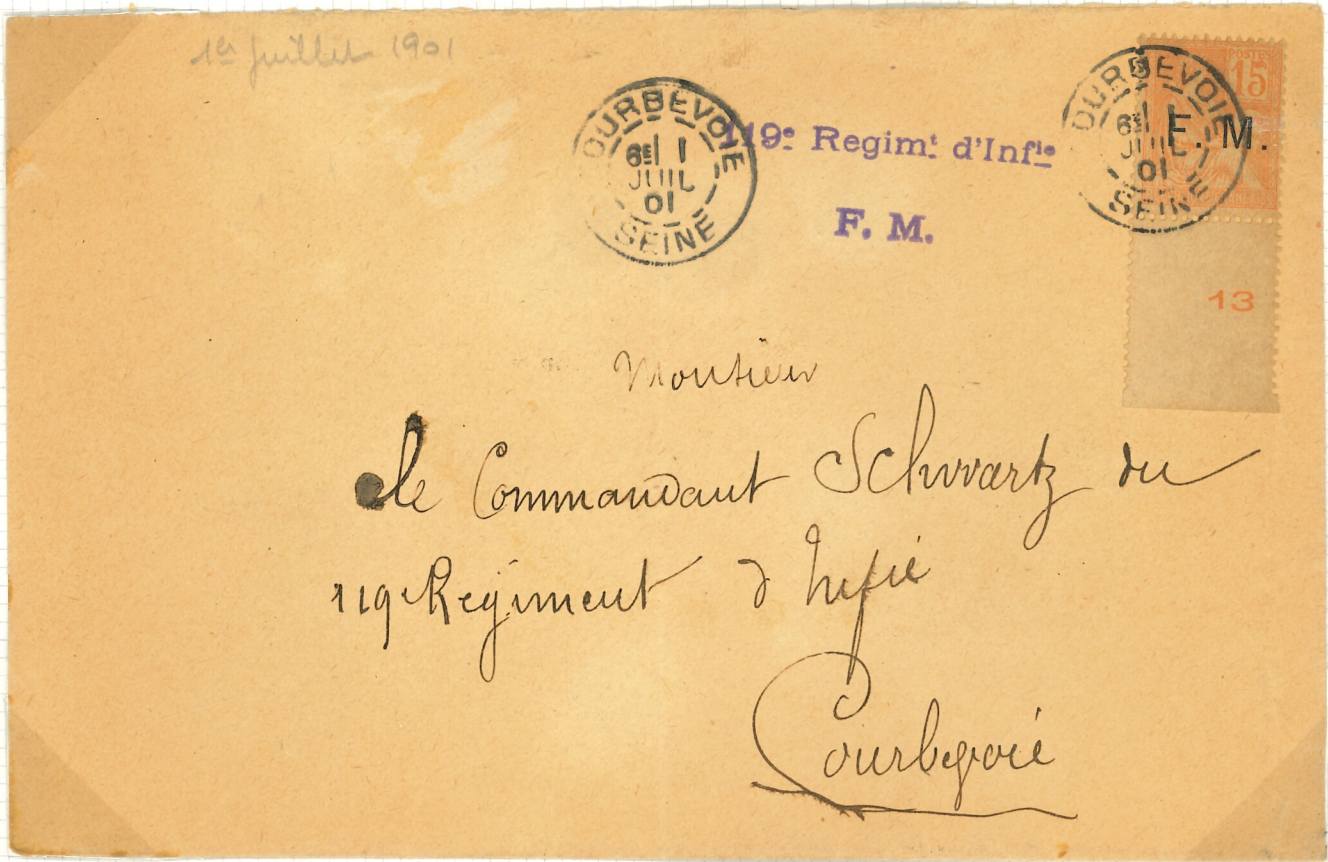 1er Juillet 1901
COURBEVOIE
6E 1
JUIL
01
SEINE
119e Regimt d'Infie
F. M.
POSTES
15
F. M.
COURBEVOIE
6E 1
JUIL
01
SEINE
13
Monsieur
le Commandant Schwartz du
119e Regiment d'Infie
Courbevoie